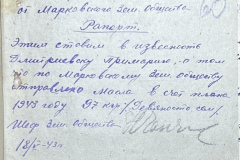 от Марковского зем. общества
Рапорт.
Этим ставим в известность
Дмитриевску Примарию, о том
что по Марковскому зем. обществу
отправлено Масла в счет плана
1943 году 97 клгр / Девяносто сем /
Шеф зем. общества